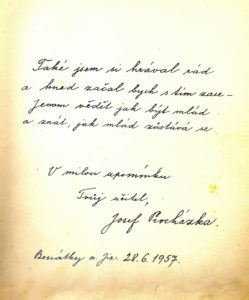 Také jsem si hrával rád
a hned začal bych s tím zase –
Jenom vědět jak být mlád
a znát, jak mlád zůstává se.
V milou upomínku
Tvůj učitel,
Josef Procházka.
Benátky n. Jz. 28.6.1957.